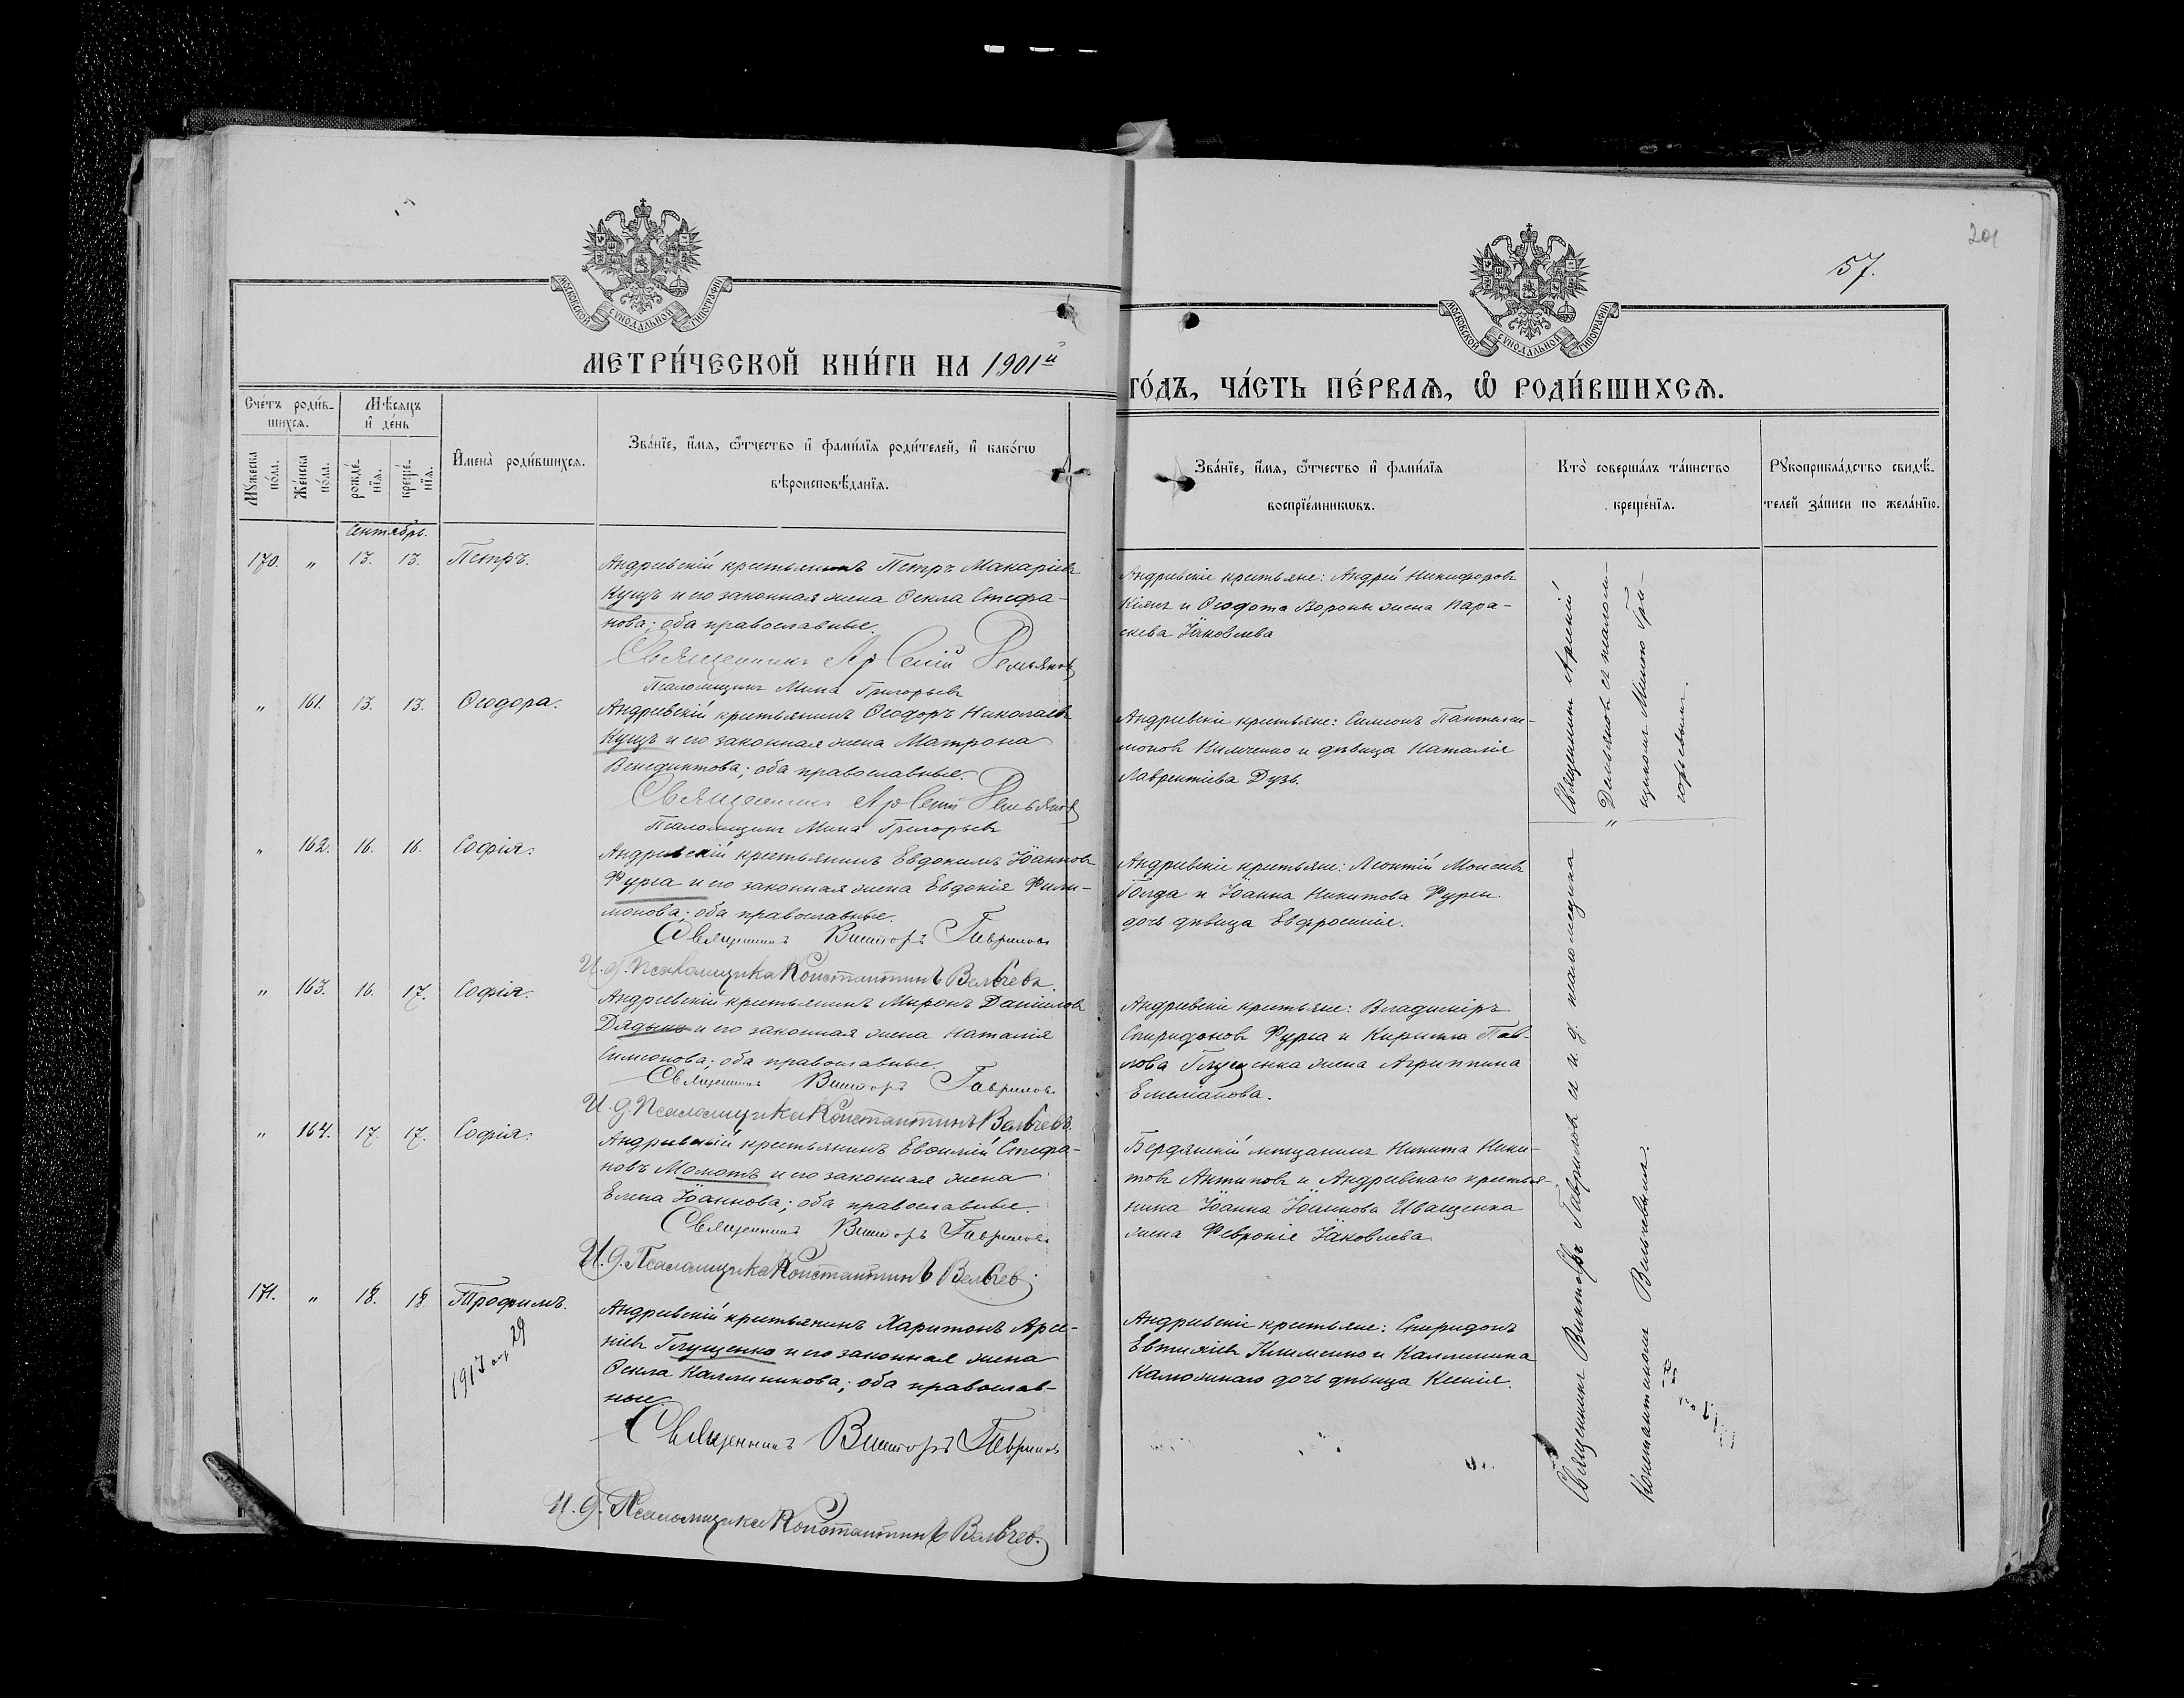 201
57.
МОСКОВСКОЙ СУНОДАЛЬНОЙ ТИПОГРАФІИ
МОСКОВСКОЙ СУНОДАЛЬНОЙ ТИПОГРАФІИ
МЕТРИ́ЧЕСКОЙ КНИ́ГИ НА 1901й
ГО́ДЪ, ЧА́СТЬ ПЕ́РВАѦ, Ѡ҆ РОДИ́ВШИХСѦ.
Сче́тъ роди́в-
шихсѧ.
Мѣ́сѧцъ
и҆ де́нь
Мꙋ́жеска
по́ла.
Же́нска
по́ла.
рожде́-
нїѧ.
креще́-
нїѧ.
И҆мена̀ роди́вшихсѧ.
Зва́нїе, и҆́мѧ, ѻ҆́тчество и҆ фами́лїѧ роди́телей, и҆ како́гѡ
вѣроисповѣ́данїѧ.
Зва́нїе, и҆́мѧ, ѻ҆́тчество и҆ фами́лїѧ
воспрїе́мникѡвъ.
Кто̀ соверша́лъ та́инство
креще́нїѧ.
Рꙋкоприкла́дство свидѣ́-
телей за́писи по жела́нїю.
Сентябрь.
170. „ 13. 13. Петръ.
Андреевскій крестьянинъ Петръ Макаріевъ
Куцъ и его законная жена Ѳекла Стефа-
нова; оба православные.
Священникъ Арсеній Демьянов
Псаломщикъ Мина Григорьевъ
Андреевскіе крестьяне: Андрей Никифоровъ
Кіянъ и Ѳеодота Вороны жена Пара-
скева Іаковлева
„ 161. 13. 13. Ѳеодора.
Андреевскій крестьянинъ Ѳеодоръ Николаевъ
Куцъ и его законная жена Матрона
Венедиктова; оба православные.
Священникъ Арсеній Демьянов
Псаломщикъ Мина Григорьевъ
Андреевскіе крестьяне: Симеонъ Пантелеи-
моновъ Климченко и дѣвица Наталія
Лаврентіева Дузь.
Священникъ Арсеній
Демьяновъ съ псалом-
щикомъ Миною Гри-
горьевымъ.
„ 162. 16. 16. Софія.
Андреевскій крестьянинъ Евдокимъ Іоанновъ
Фурса и его законная жена Евдокія Фили-
монова; оба православные.
Священникъ Викторъ Гавриловъ
И. д. Псаломщика Константинъ Вельчевъ.
Андреевскіе крестьяне: Леонтій Моисеевъ
Голда и Іоанна Никитова Фурсы
дочь дѣвица Евфросинія.
„ 163. 16. 17. Софія.
Андреевскій крестьянинъ Миронъ Даніиловъ
Дядько и его законная жена Наталія
Симеонова; оба православные.
Священникъ Викторъ Гавриловъ
И. д. Псаломщика Константинъ Вельчевъ.
Андреевскіе крестьяне: Владиміръ
Спиридоновъ Фурса и Кирилла Пав-
лова Глущенка жена Агриппина
Емеліанова.
„ 164. 17. 17. Софія.
Андреевскій крестьянинъ Евѳимій Стефа-
новъ Молотъ и его законная жена
Елена Іоаннова; оба православные.
Священникъ Викторъ Гавриловъ
И. д. Псаломщика Константинъ Вельчев.
Бердянскій мѣщанинъ Никита Ники-
товъ Антиповъ и Андреевскаго крестья-
нина Іоанна Іоаннова Иващенка
жена Февронія Іаковлева.
171. „ 18. 18 Трофимъ.
1913 29
Андреевскій крестьянинъ Харитонъ Арсе-
ніевъ Глущенко и его законная жена
Ѳекла Каллиникова; оба православ-
ные.
Священникъ Викторъ Гаврилов
И. д. Псаломщика Константинъ Вельчев.
Андреевскіе крестьяне: Спиридонъ
Евтихіевъ Клименко и Каллиника
дочь дѣвица Ксенія.
Священникъ Викторъ Гавриловъ съ и. д. псаломщика
Константиномъ Вельчевымъ.